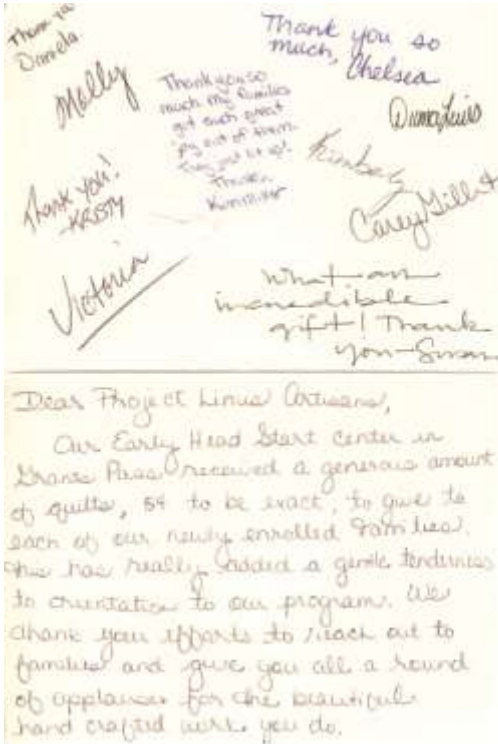 Thank you
Daniela
Molly
Thank you so
much, my families
got such great
joy out of them.
They just lit up!
Thanks,
Thank you so
much, Chelsea
Kimberly
Thank you!
-KRISTY
Carey
Victoria
What an
incredible
gift! Thank
you-Susan
Dear Project Linus Artisans,
Our Early Head Start center in
Grants Pass received a generous amount
of quilts, 54 to be exact, to give to
each of our newly enrolled families.
This has really added a gentle tenderness
to orientation to our program. We
thank your efforts to reach out to
families and give you all a round
of applause for the beautiful
hand crafted work you do.